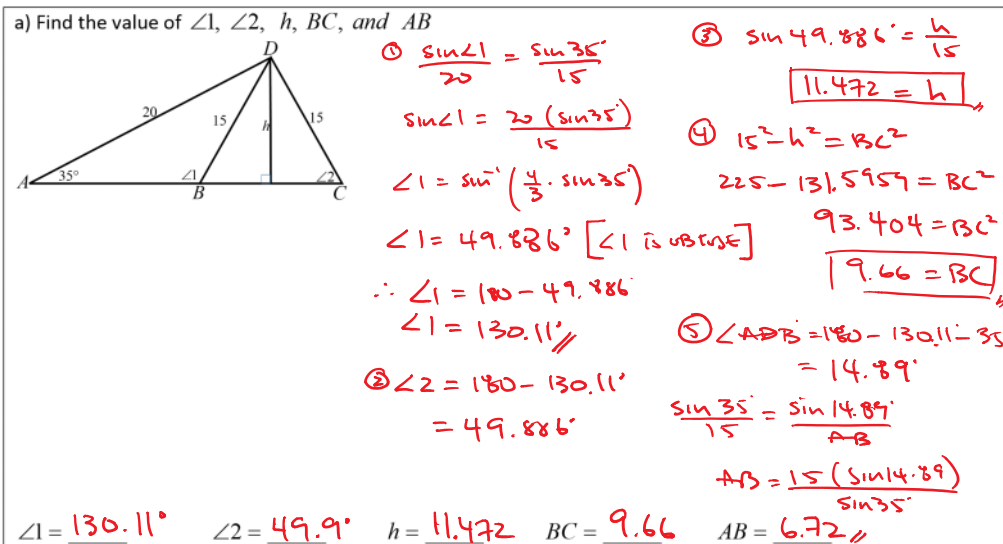 a) Find the value of ∠1, ∠2, h, BC, and AB
D
20
15
h
15
A
35°
∠1
B
∠2
C
① sin∠1/20 = sin35°/15
sin∠1 = 20(sin35°)/15
∠1 = sin⁻¹(4/3 · sin35°)
∠1 = 49.886° [∠1 is OBTUSE]
∴ ∠1 = 180 - 49.886
∠1 = 130.11°
② ∠2 = 180 - 130.11°
= 49.886°
③ sin 49.886° = h/15
11.472 = h
④ 15² - h² = BC²
225 - 131.5959 = BC²
93.404 = BC²
9.66 = BC
⑤ ∠ADB = 180 - 130.11 - 35
= 14.89°
sin 35°/15 = sin 14.89°/AB
AB = 15(sin14.89)/sin35°
∠1 = 130.11° ∠2 = 49.9° h = 11.472 BC = 9.66 AB = 6.72